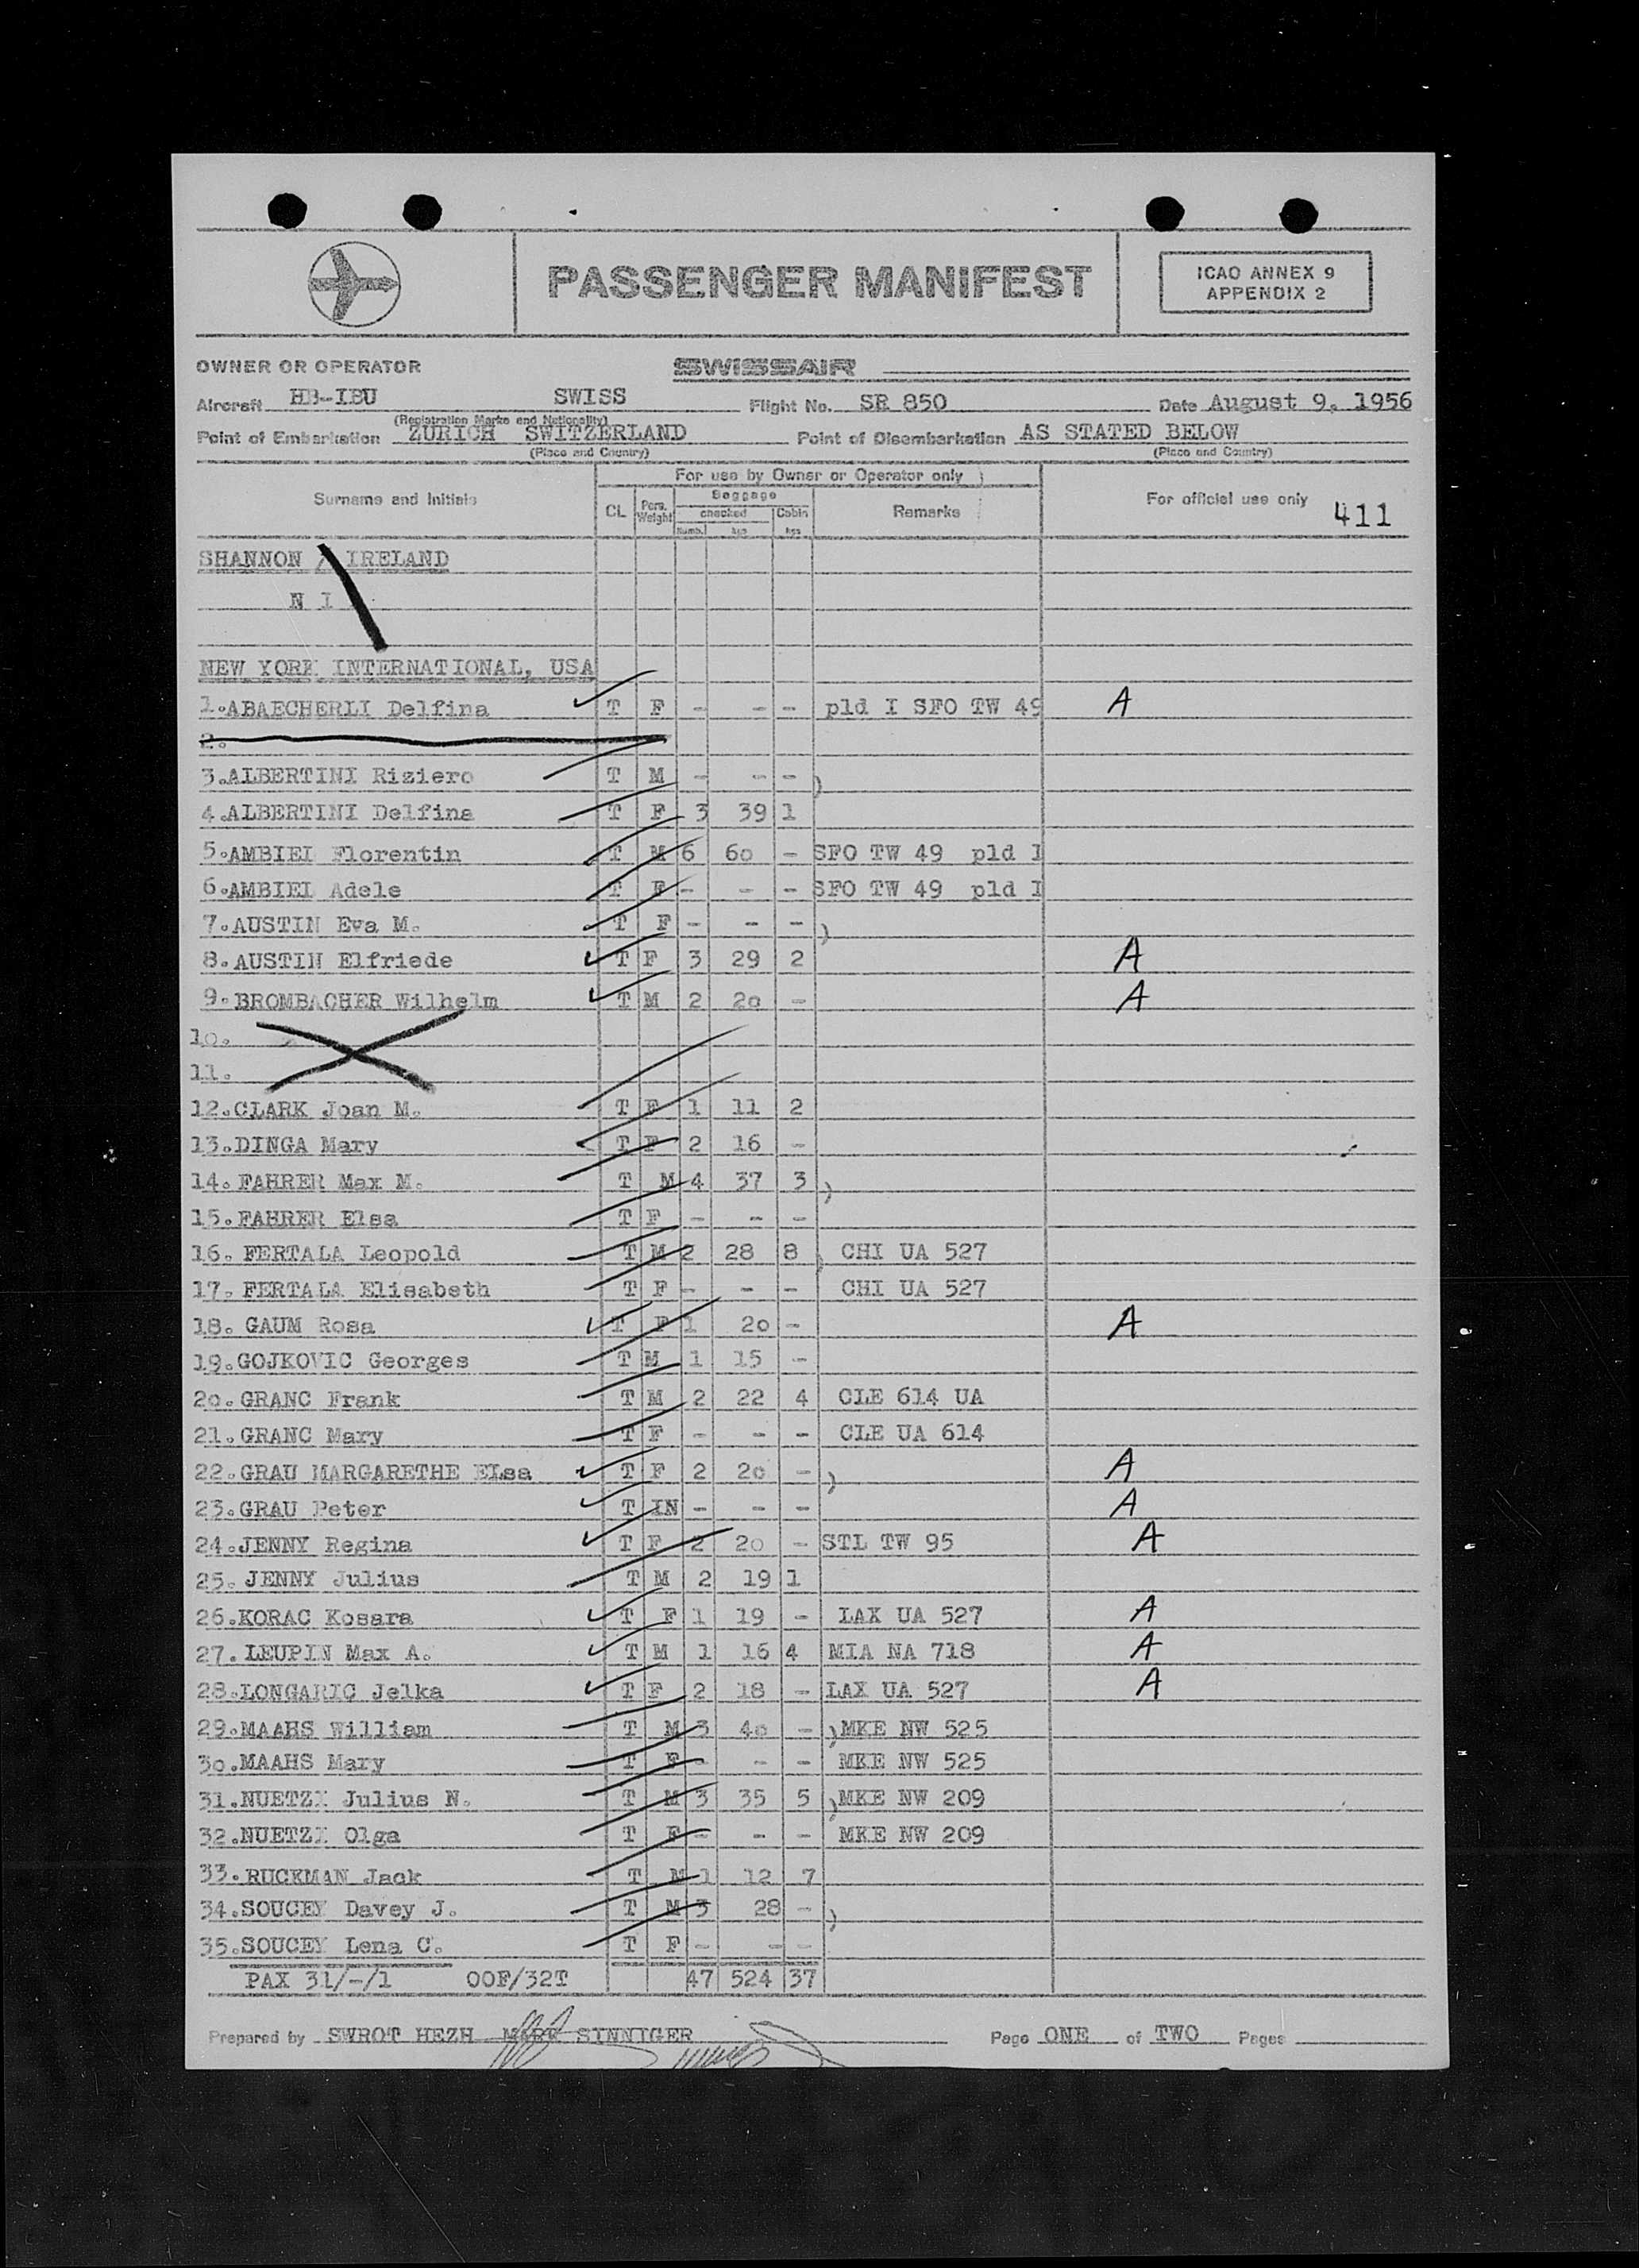 PASSENGER MANIFEST
ICAO ANNEX 9
APPENDIX 2
OWNER OR OPERATOR SWISSAIR
Aircraft HB-IBU SWISS Flight No. SR 850 Date August 9, 1956
(Registration Marks and Nationality)
Point of Embarkation ZURICH SWITZERLAND Point of Disembarkation AS STATED BELOW
(Place and Country) (Place and Country)
For use by Owner or Operator only
Surname and Initials CL Pers. Weight Baggage checked Numb. kgs Cabin kgs Remarks For official use only 411
SHANNON IRELAND
N I
NEW YORK INTERNATIONAL, USA
1.ABAECHERLI Delfina T F - - - pld I SFO TW 49 A
2.
3.ALBERTINI Riziero T M - - - )
4.ALBERTINI Delfina T F 3 39 1
5.AMBIEL Florentin T M 6 60 - SFO TW 49 pld I
6.AMBIEL Adele T F - - - SFO TW 49 pld I
7.AUSTIN Eva M. T F - - - )
8.AUSTIN Elfriede T F 3 29 2 A
9.BROMBACHER Wilhelm T M 2 20 - A
10.
11.
12.CLARK Joan M. T F 1 11 2
13.DINGA Mary T F 2 16 -
14.FAHRER Max M. T M 4 37 3 )
15.FAHRER Elsa T F - - -
16. FERTALA Leopold T M 2 28 8 ) CHI UA 527
17. FERTALA Elisabeth T F - - - CHI UA 527
18. GAUM Rosa T F 1 20 - A
19.GOJKOVIC Georges T M 1 15 -
20.GRANC Frank T M 2 22 4 CLE 614 UA
21.GRANC Mary T F - - - CLE UA 614
22.GRAU MARGARETHE ELsa T F 2 20 - ) A
23.GRAU Peter T IN - - - A
24.JENNY Regina T F 2 20 - STL TW 95 A
25. JENNY Julius T M 2 19 1
26.KORAC Kosara T F 1 19 - LAX UA 527 A
27. LEUPIN Max A. T M 1 16 4 MIA NA 718 A
28.LONGARIC Jelka T F 2 18 - LAX UA 527 A
29.MAAHS William T M 3 40 - )MKE NW 525
30.MAAHS Mary T F - - - MKE NW 525
31.NUETZI Julius N. T M 3 35 5 )MKE NW 209
32.NUETZI Olga T F - - - MKE NW 209
33.RUCKMAN Jack T M 1 12 7
34.SOUCEY Davey J. T M 3 28 - )
35.SOUCEY Lena C. T F - - -
PAX 31/-/1 OOF/32T 47 524 37
Prepared by SWROT HEZH MARK SINNIGER Page ONE of TWO Pages